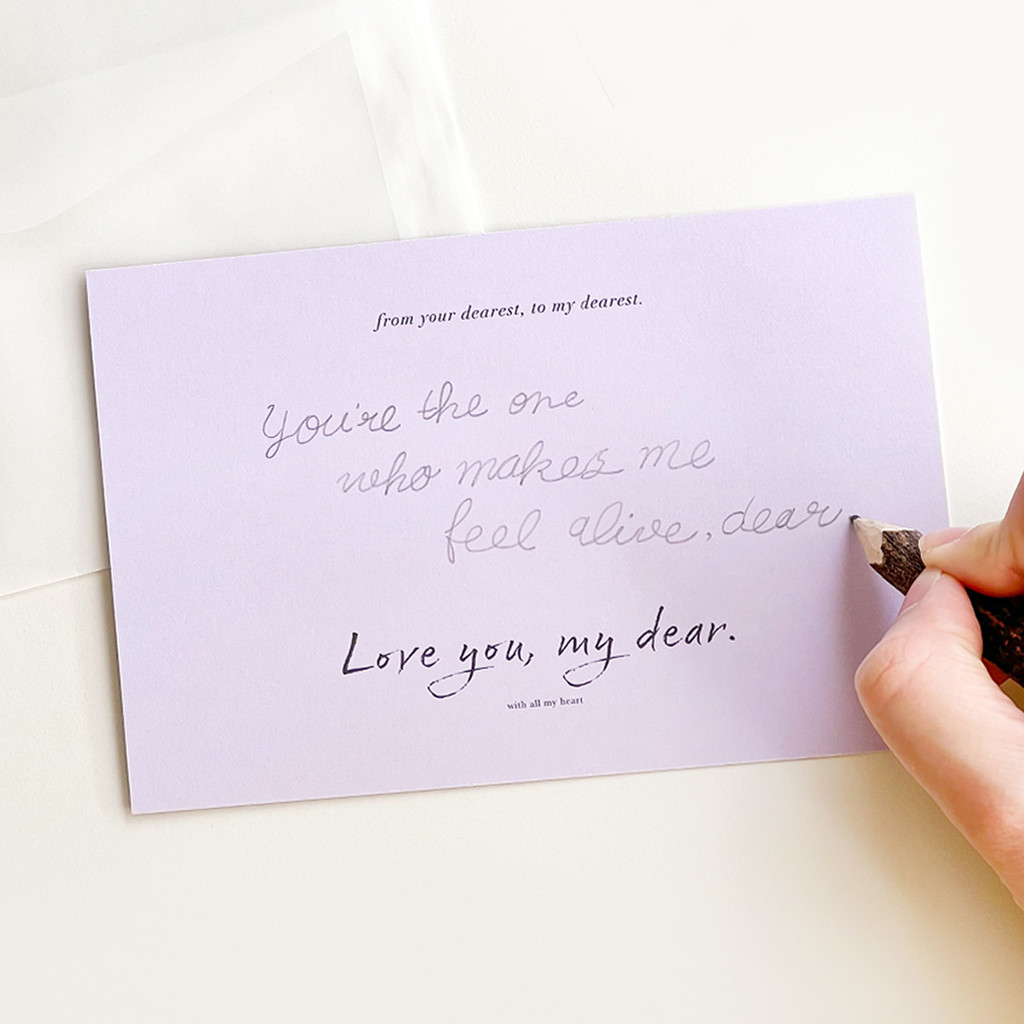 from your dearest, to my dearest.
You're the one
who makes me
feel alive, dear
Love you, my dear.
with all my heart